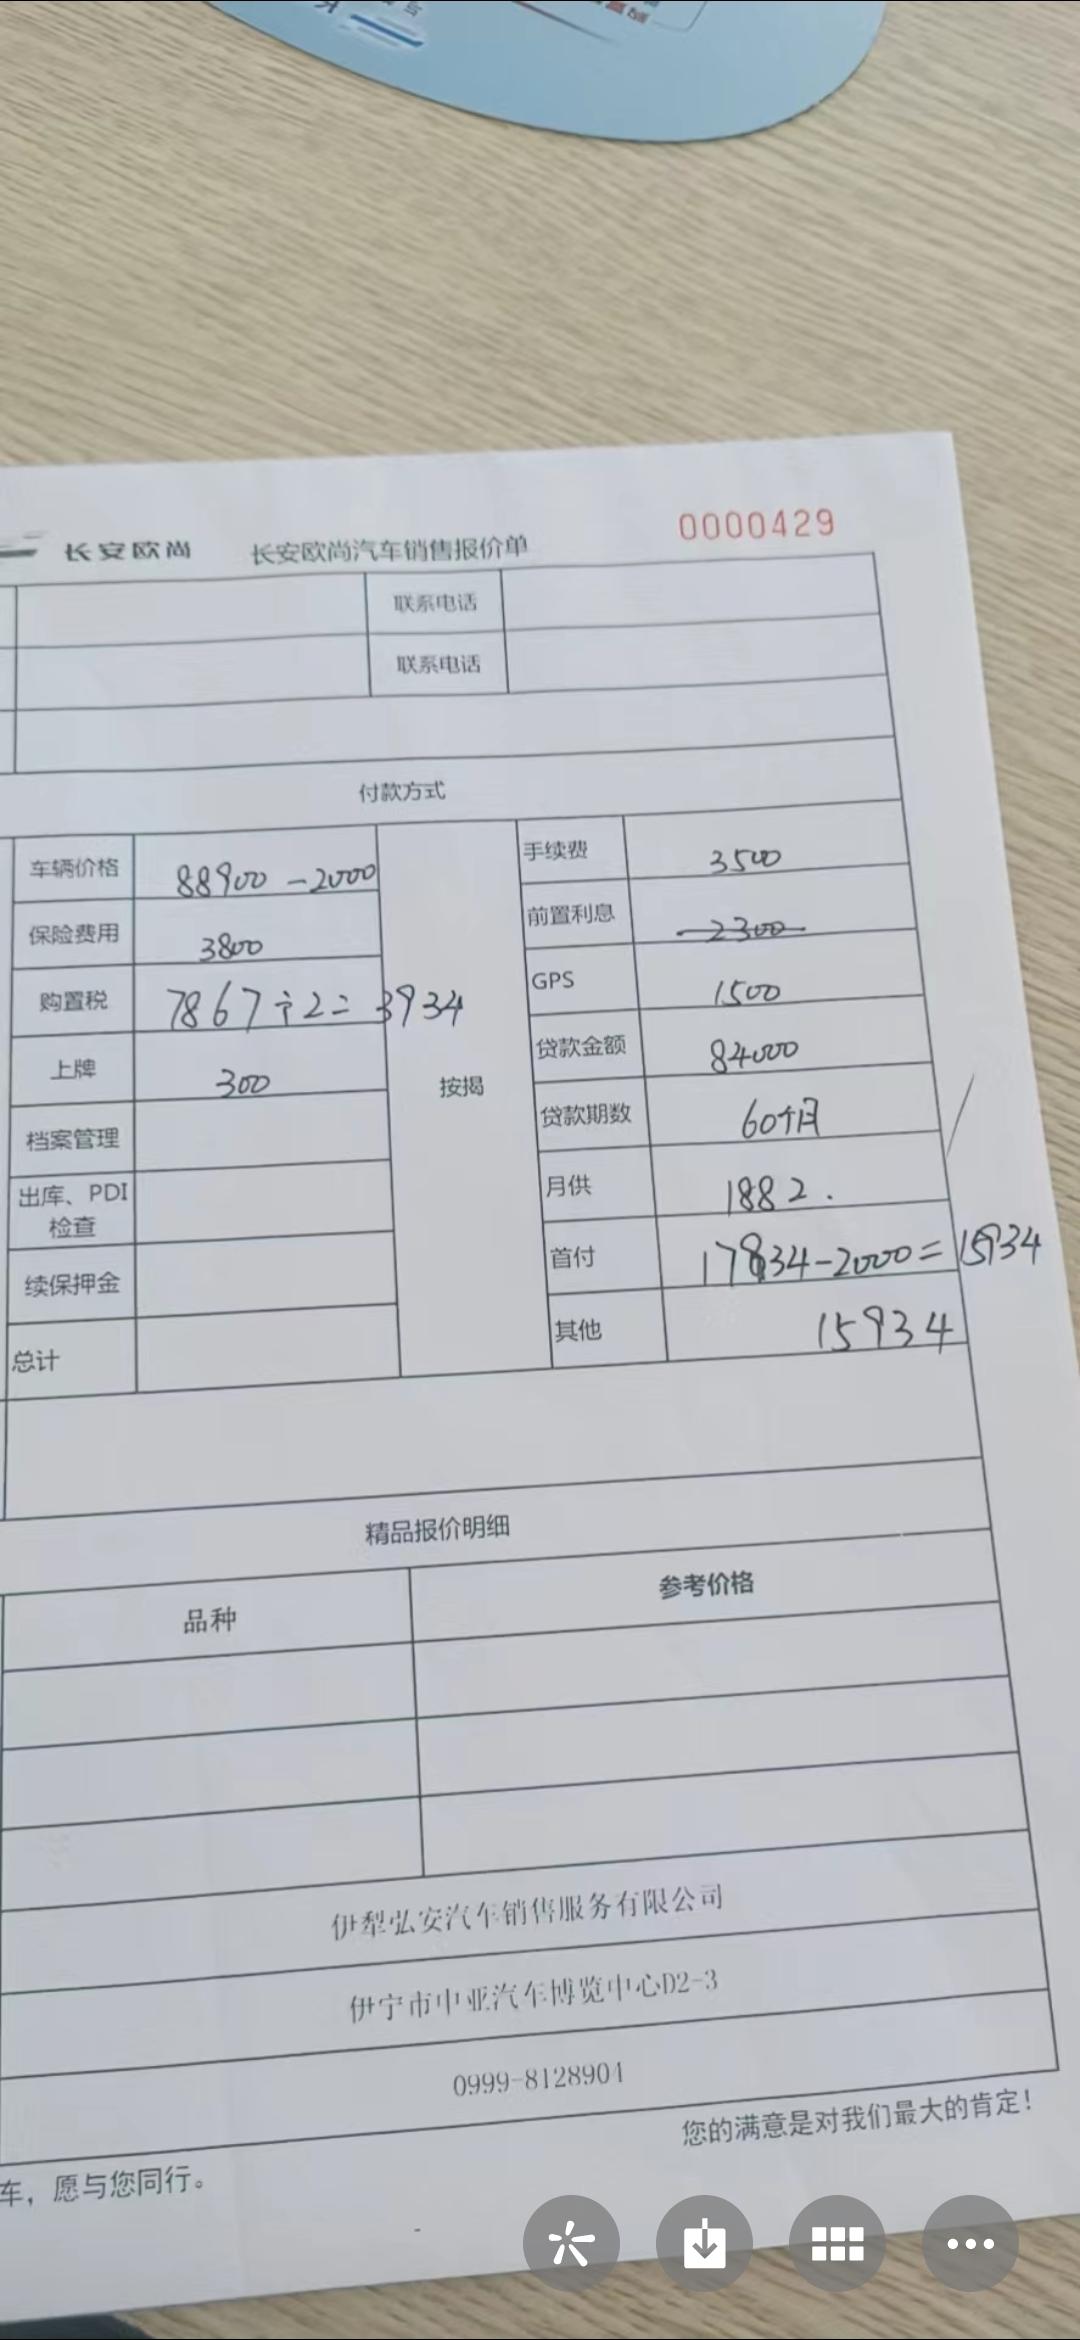 长安欧尚 长安欧尚汽车销售报价单 0000429
联系电话
联系电话
付款方式
车辆价格 88900 -2000 手续费 3500
保险费用 3800 前置利息 2300
购置税 7867÷2= 3934 GPS 1500
上牌 300 按揭 贷款金额 84000
档案管理 贷款期数 60个月
出库、PDI检查 月供 1882.
续保押金 首付 17834-2000=15934
总计 其他 15934
精品报价明细
品种 参考价格
伊犁弘安汽车销售服务有限公司
伊宁市中亚汽车博览中心D2-3
0999-8128904
您的满意是对我们最大的肯定!
车，愿与您同行。